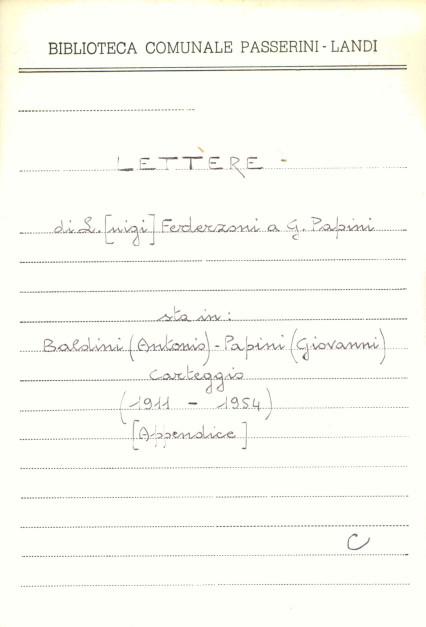 BIBLIOTECA COMUNALE PASSERINI - LANDI
LETTÈRE -
di L. [uigi] Federzoni a G. Papini
sta in :
Baldini (Antonio) - Papini (Giovanni)
Carteggio
(1911 - 1954)
[Appendice]
C